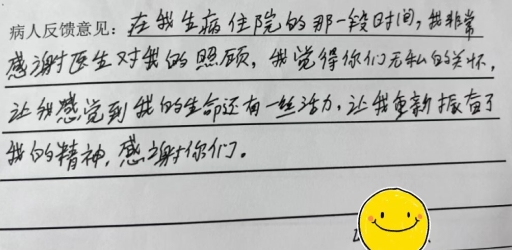 病人反馈意见：在我生病住院的那一段时间，我非常
感谢医生对我的照顾，我觉得你们无私的关怀，
让我感觉到我的生命还有一丝活力，让我重新振奋了
我的精神，感谢你们。